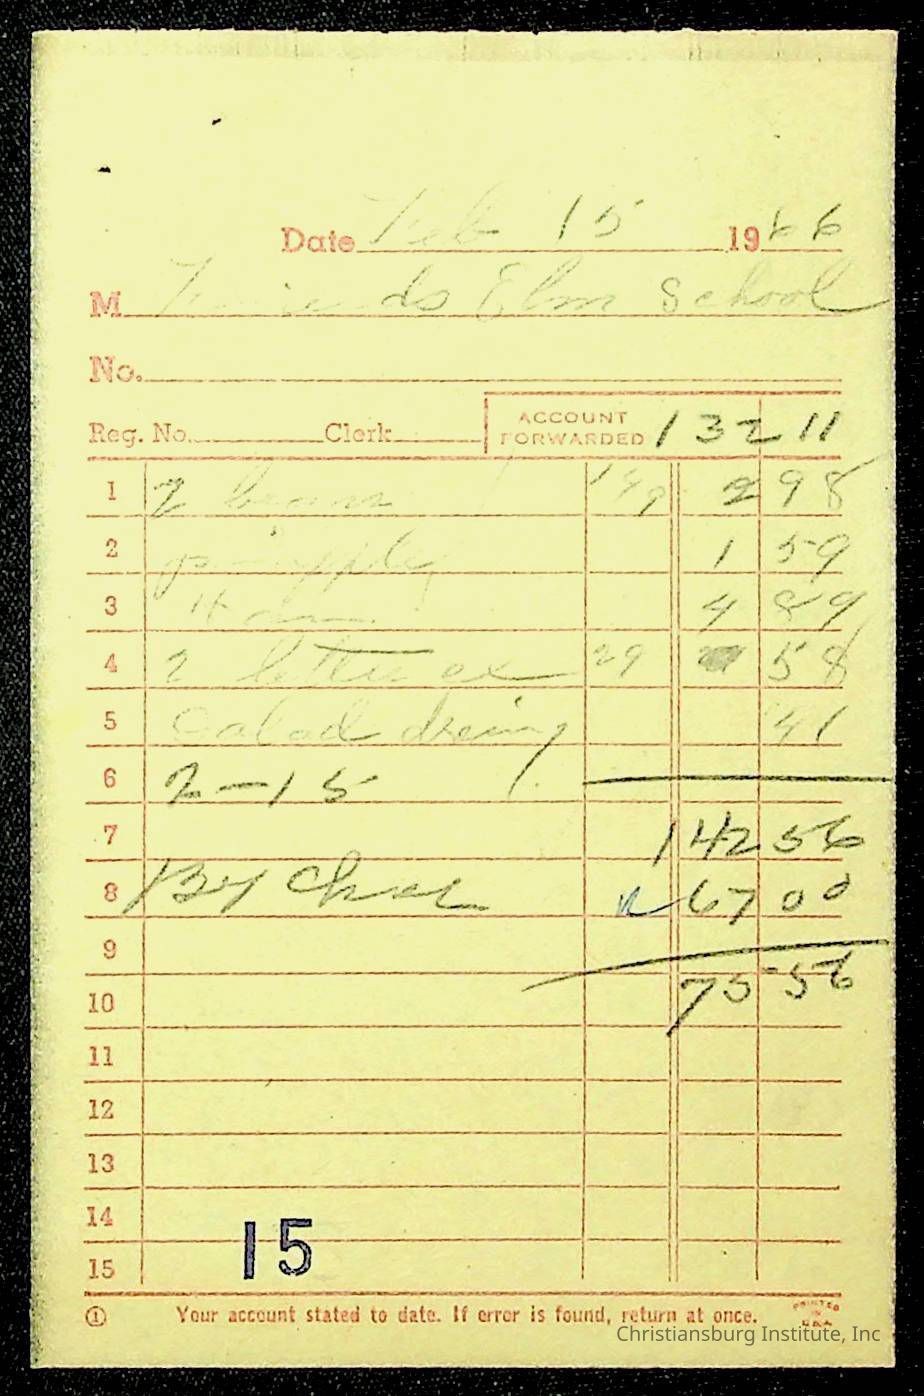 Date Feb 15 1966
M Friends Elm School
No.
Reg. No. Clerk ACCOUNT FORWARDED 132 11
1 2 149 2 98
2 1 59
3 Ham 4 89
4 2 29 58
5 Salad dreing 41
6 2-15
7 142 56
8 By Chec 67 00
9
10 75 56
11
12
13
14
15
15
1 Your account stated to date. If error is found, return at once. PRINTED IN U.S.A.
Christiansburg Institute, Inc